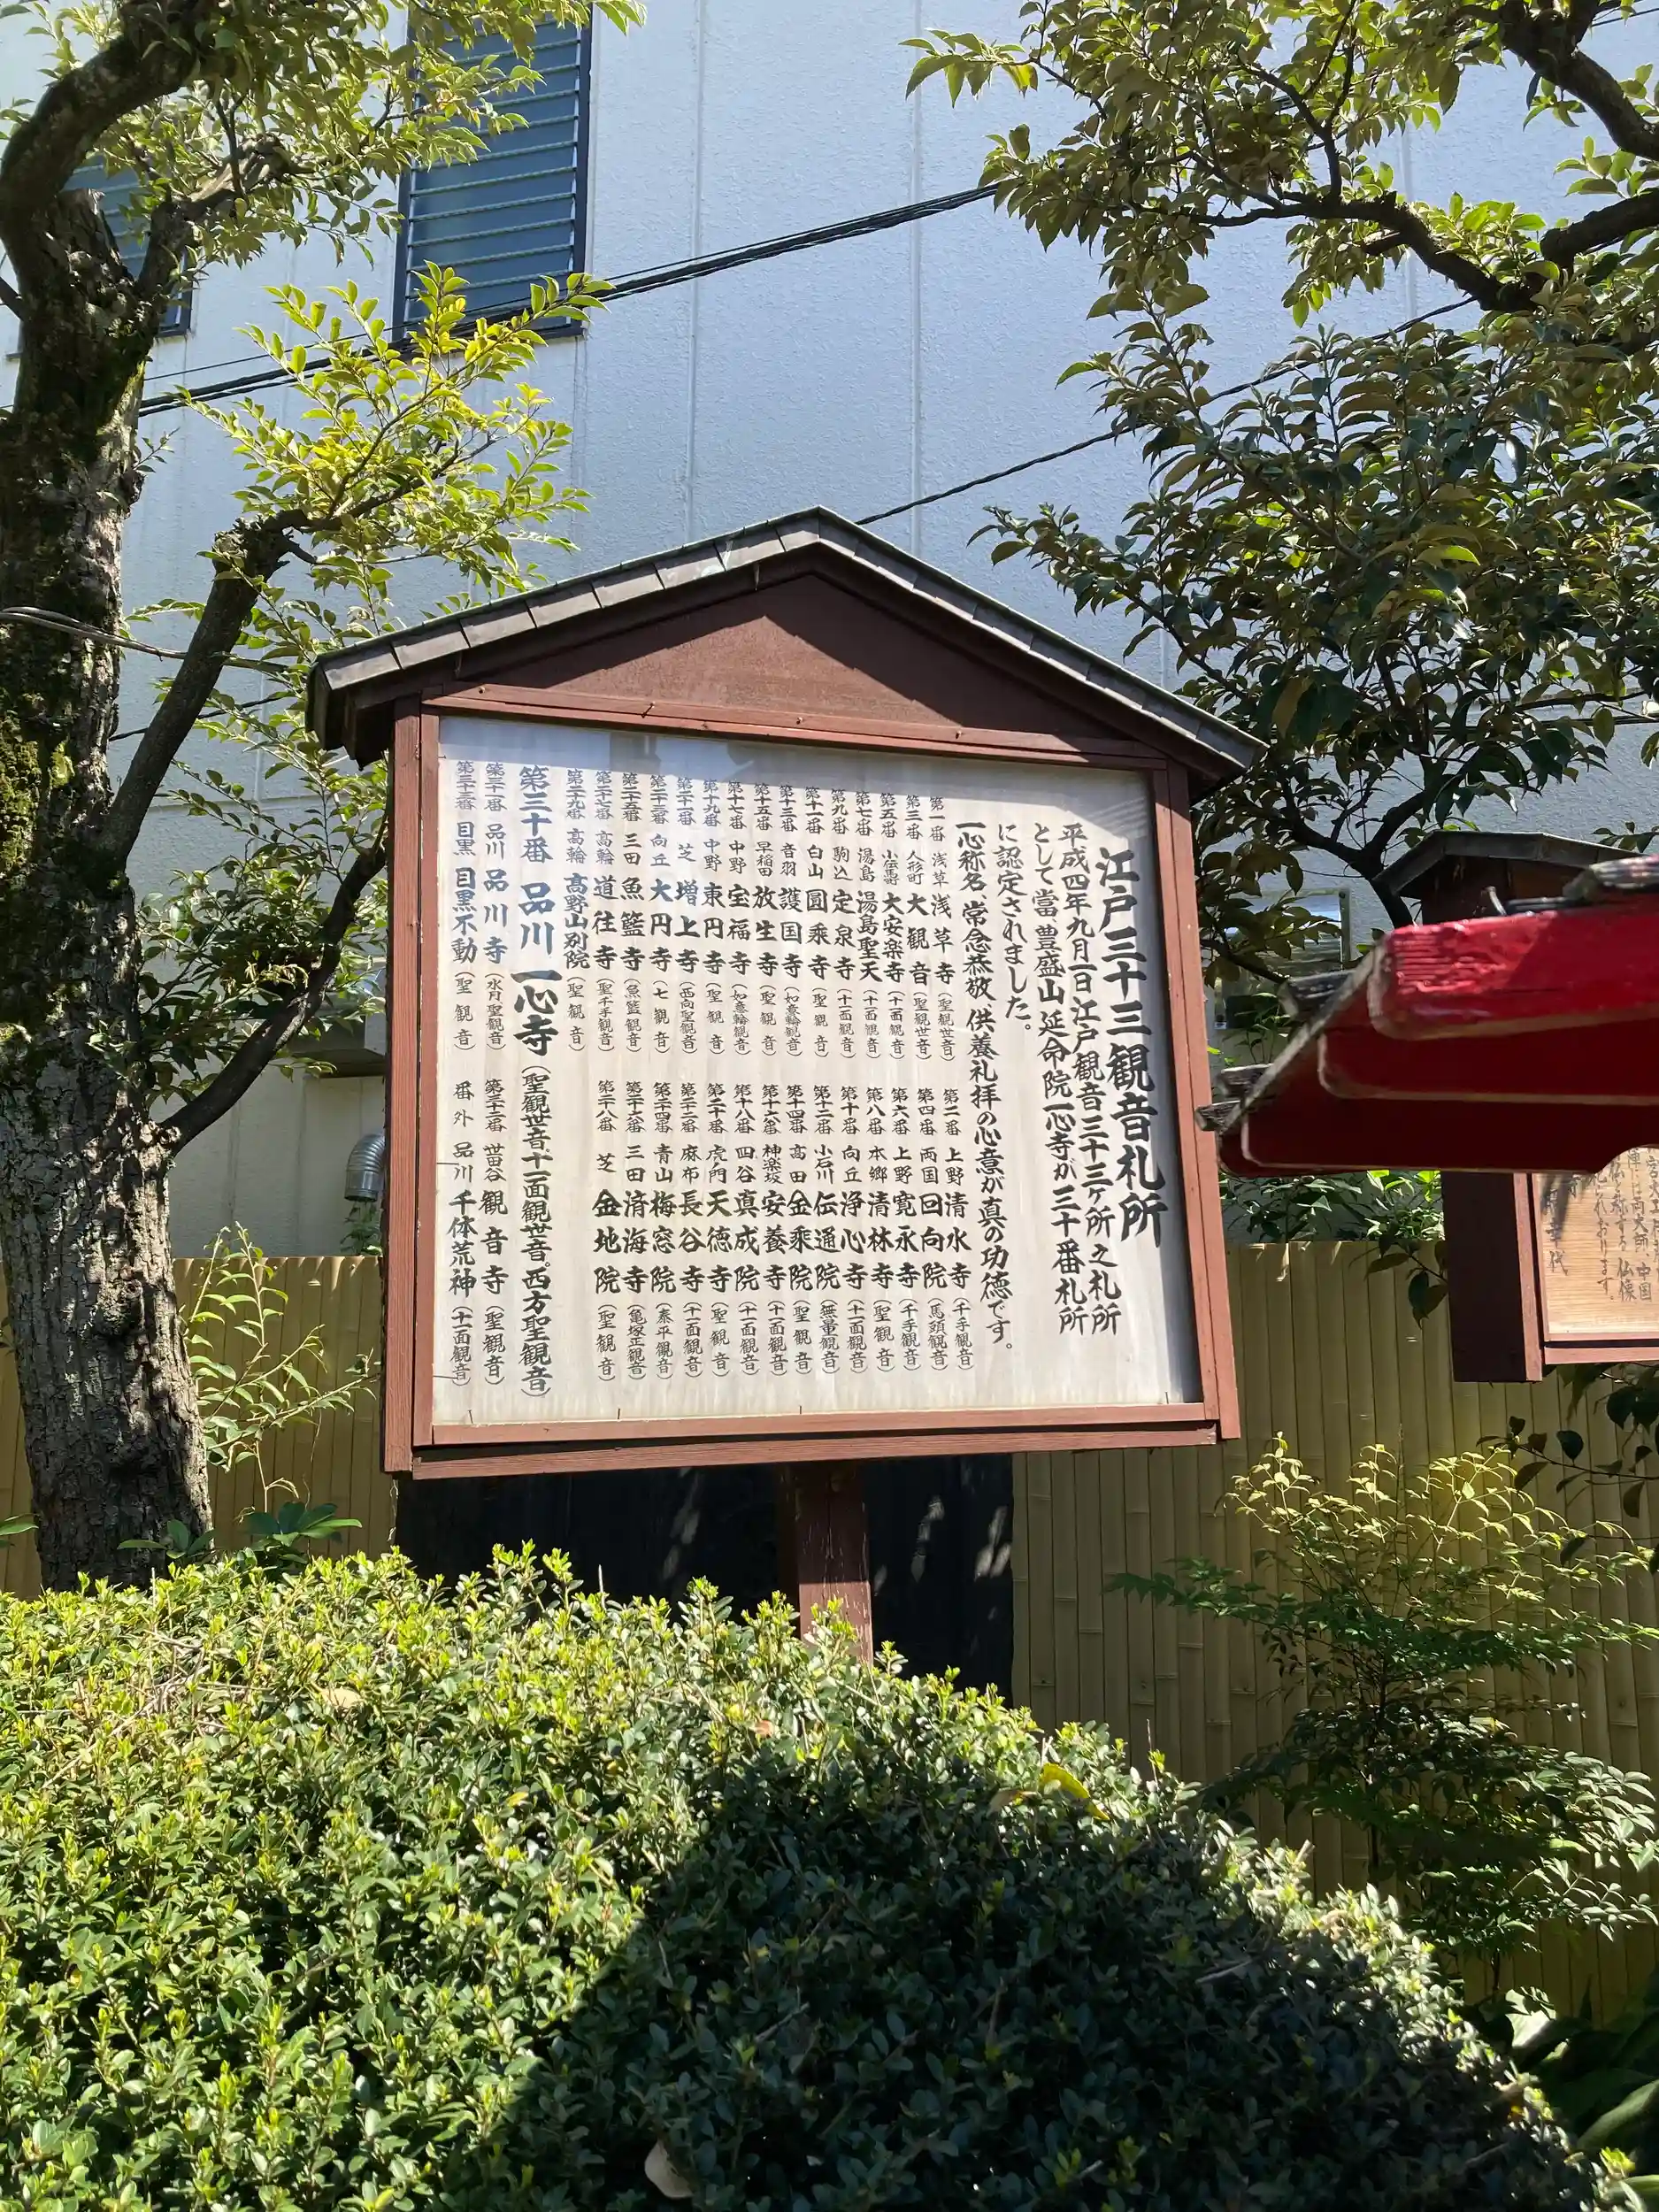 江戸三十三観音札所
平成四年九月一日江戸観音三十三ヶ所之札所
として當豊盛山延命院一心寺が三十番札所
に認定されました。
一心称名、常念恭敬、供養礼拝の心意が真の功徳です。
第一番 浅草 浅草寺（聖観世音）
第二番 上野 清水寺（千手観音）
第三番 人形町 大観音（聖観世音）
第四番 両国 回向院（馬頭観音）
第五番 小伝馬 大安楽寺（十一面観音）
第六番 上野 寛永寺（千手観音）
第七番 湯島 湯島聖天（十一面観音）
第八番 本郷 清林寺（聖観音）
第九番 駒込 定泉寺（十一面観音）
第十番 向丘 浄心寺（十一面観音）
第十一番 白山 圓乘寺（聖観音）
第十二番 小石川 伝通院（無量観音）
第十三番 音羽 護国寺（如意輪観音）
第十四番 高田 金乘院（聖観音）
第十五番 早稲田 放生寺（聖観音）
第十六番 神楽坂 安養寺（十一面観音）
第十七番 中野 宝福寺（如意輪観音）
第十八番 四谷 真成院（十一面観音）
第十九番 中野 東円寺（聖観音）
第二十番 虎ノ門 天徳寺（聖観音）
第二十一番 芝 増上寺（西向聖観音）
第二十二番 麻布 長谷寺（十一面観音）
第二十三番 向丘 大円寺（七観音）
第二十四番 青山 梅窓院（泰平観音）
第二十五番 三田 魚籃寺（魚籃観音）
第二十六番 三田 済海寺（亀塚正観音）
第二十七番 高輪 道往寺（聖千手観音）
第二十八番 芝 金地院（聖観音）
第二十九番 高輪 高野山別院（聖観音）
第三十番 品川 一心寺（聖観世音、十一面観世音。西方聖観音）
第三十一番 品川 品川寺（水月聖観音）
第三十二番 世田谷 観音寺（聖観音）
第三十三番 目黒 目黒不動（聖観音）
番外 品川 千体荒神（十一面観音）